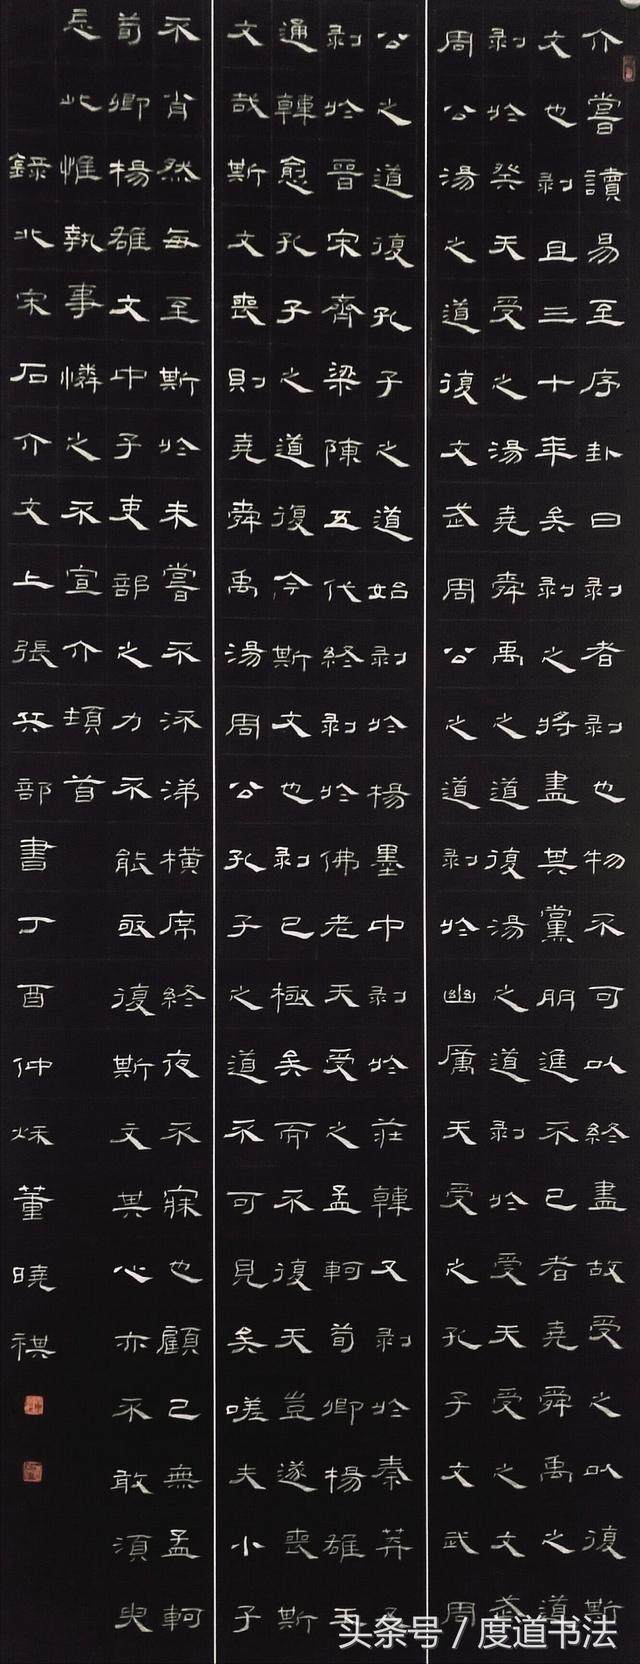 介嘗讀易至序卦曰剥者剥也物不可以終盡故受之以復斯
文也剥且三十年矣剥之將盡其黨朋進不已者堯舜禹之道
剥於癸天受之湯堯舜禹之道復湯之道剥於受天受之文武
周公湯之道復文武周公之道剥於幽厲天受之孔子文武周
公之道復孔子之道始剥於楊墨中剥於莊韓又剥於秦莽又
剥於晉宋齊梁陳五代終剥於佛老天受之孟軻荀卿楊雄王
通韓愈孔子之道復今斯文也剥已極矣而不復天豈遂喪斯
文哉斯文喪則堯舜禹湯周公孔子之道不可見矣嗟夫小子
不肖然每至斯於未嘗不泳涕橫席終夜不寐也顧己無孟軻
荀卿楊雄文中子吏部之力不能亟復斯文其心亦不敢須臾
忘此惟執事憐之不宣介頓首
録北宋石介文上張兵部書丁酉仲秋董曉祺
头条号 / 度道书法